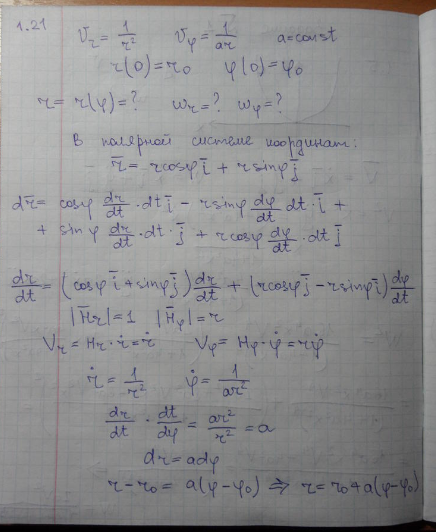 1.21 V_r = 1/r² V_φ = 1/ar a=const
r(0)=r₀ φ(0)=φ₀
r = r(φ)=? w_r=? w_φ=?
В полярной системе координат:
r̄ = rcosφ ī + rsinφ j̄
dr̄ = cosφ dr/dt · dt ī − rsinφ dφ/dt dt · ī +
+ sinφ dr/dt · dt · j̄ + rcosφ dφ/dt · dt j̄
dr̄/dt = (cosφ ī + sinφ j̄) dr/dt + (rcosφ j̄ − rsinφ ī) dφ/dt
|H̄_r|=1 |H̄_φ|=r
V_r = H_r · ṙ = ṙ V_φ = H_φ · φ̇ = rφ̇
ṙ = 1/r² φ̇ = 1/ar²
dr/dt · dt/dφ = ar²/r² = a
dr = adφ
r−r₀ = a(φ−φ₀) ⇒ r = r₀+a(φ−φ₀)